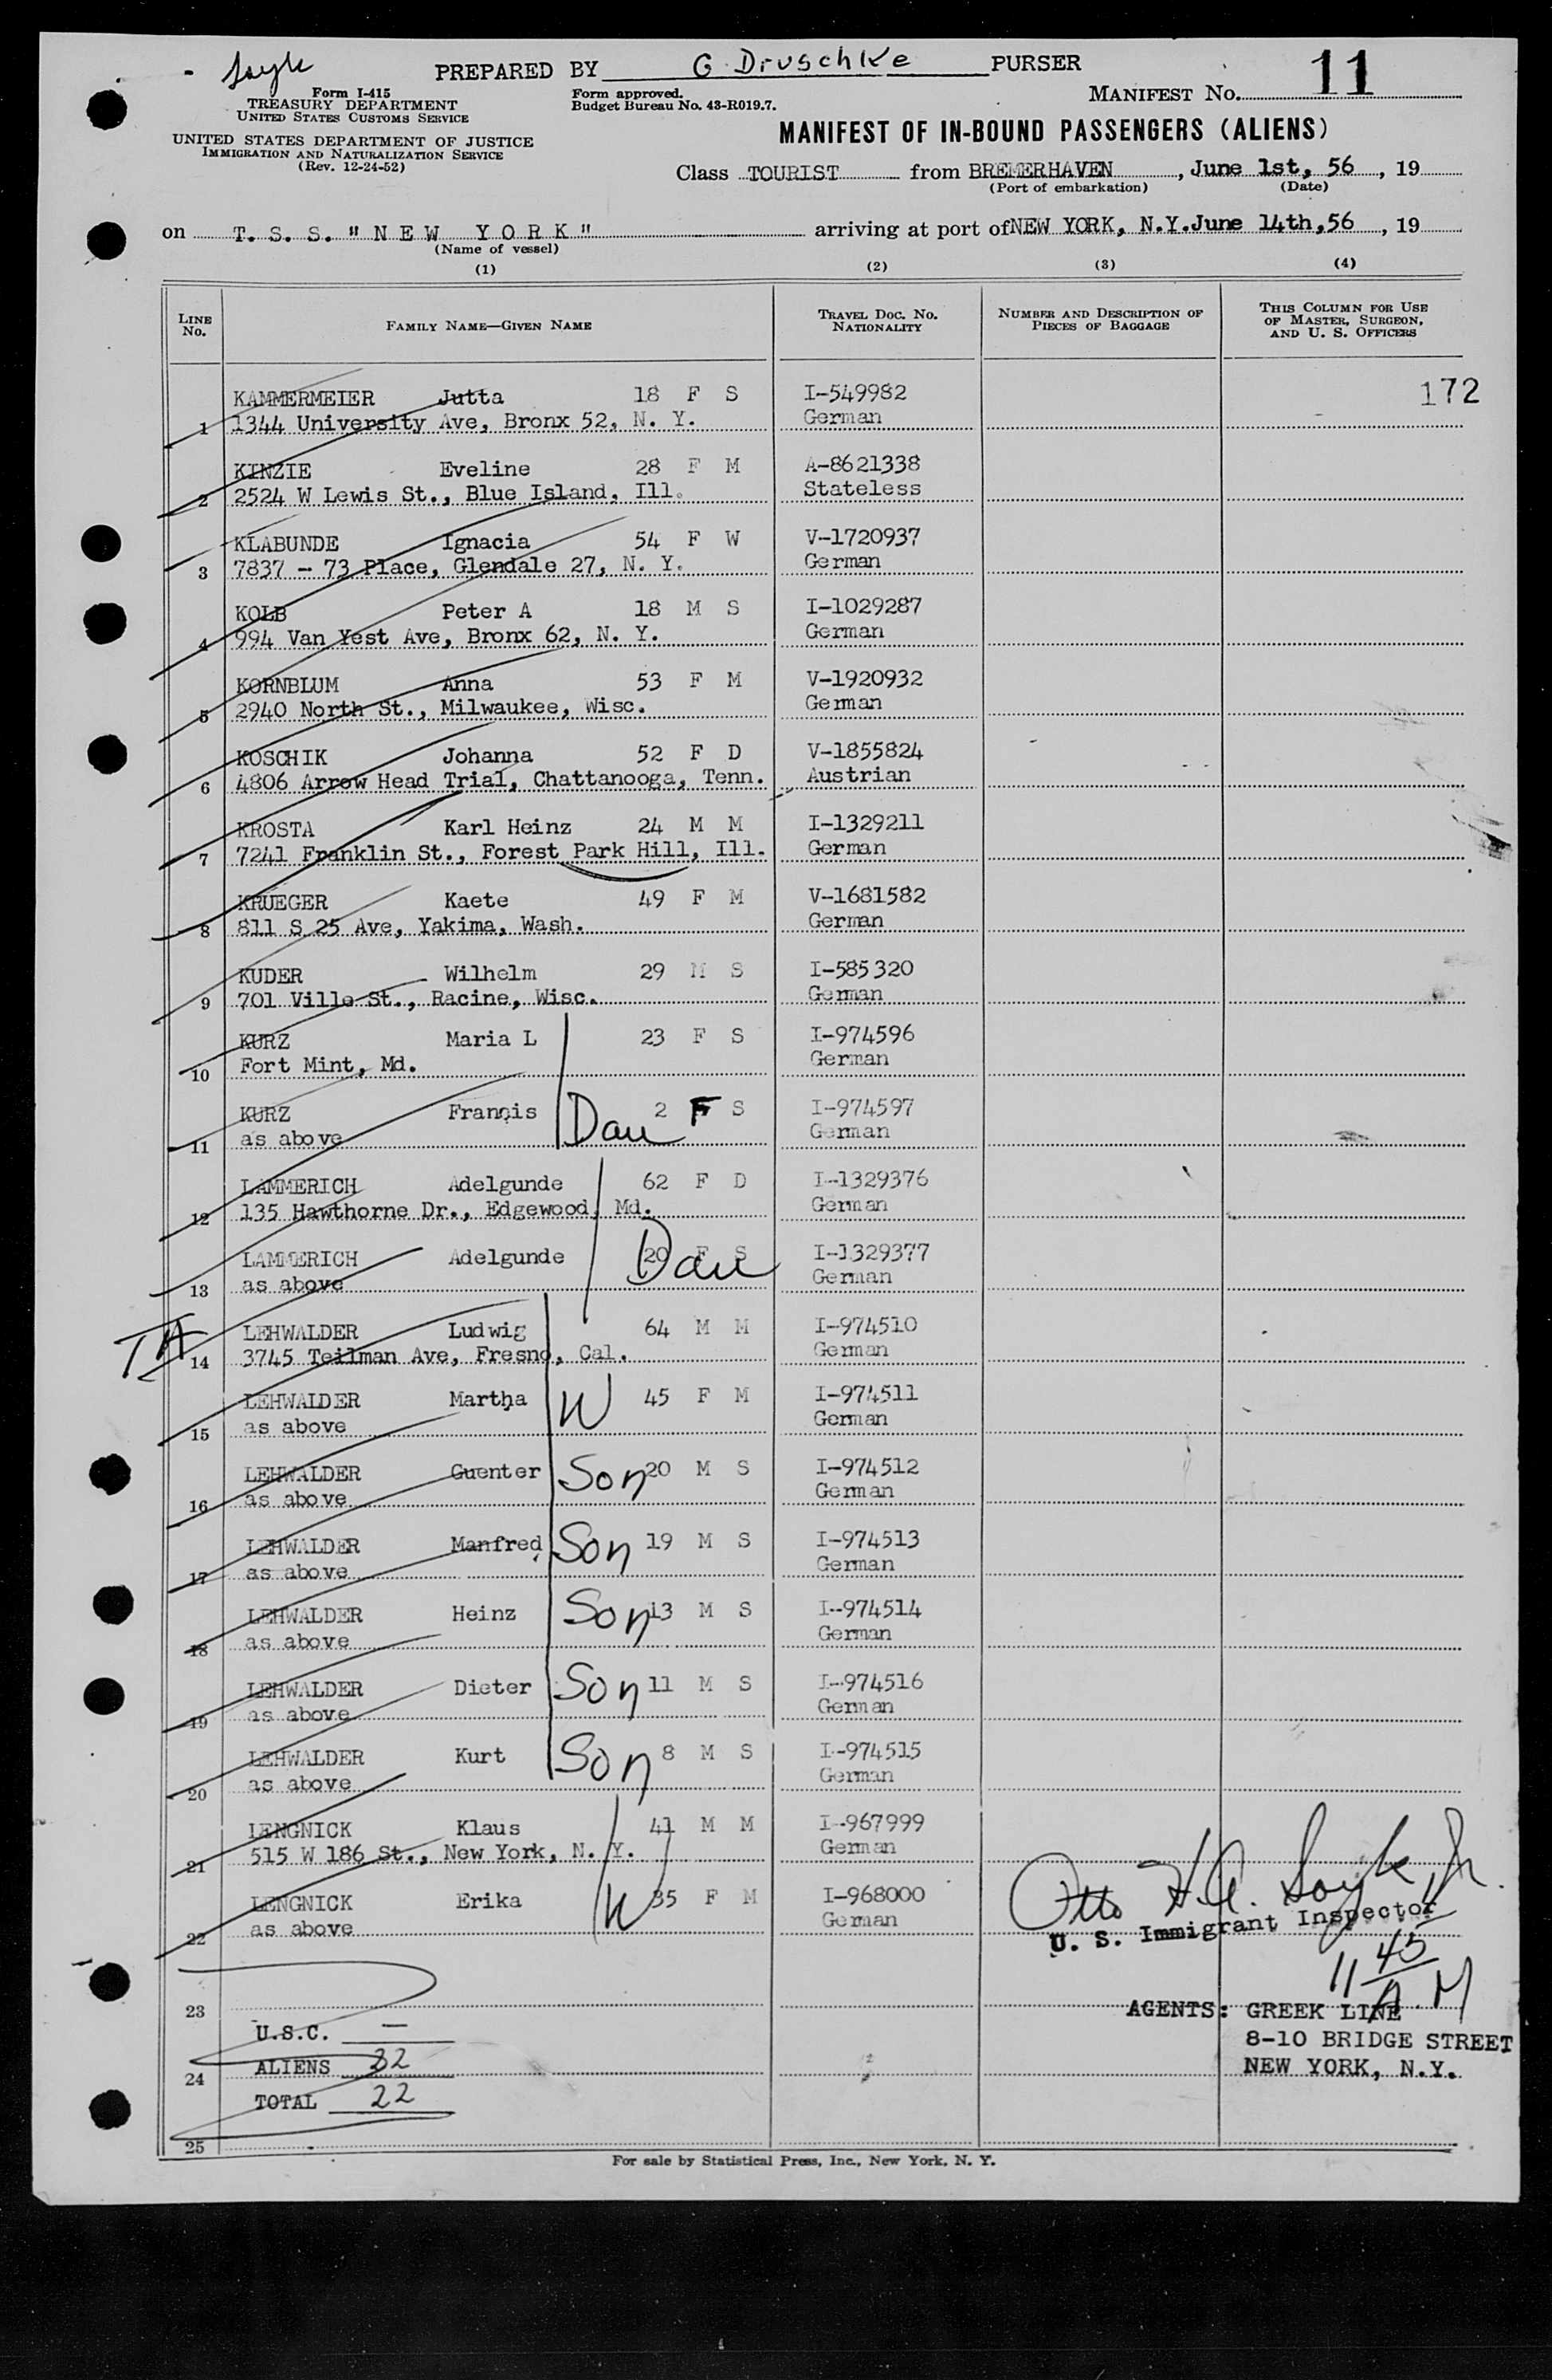 PREPARED BY G Druschke PURSER
MANIFEST NO. 11
Form I-415
TREASURY DEPARTMENT
UNITED STATES CUSTOMS SERVICE
UNITED STATES DEPARTMENT OF JUSTICE
IMMIGRATION AND NATURALIZATION SERVICE
(Rev. 12-24-52)
Form approved.
Budget Bureau No. 43-R019.7.
MANIFEST OF IN-BOUND PASSENGERS (ALIENS)
Class TOURIST from BREMERHAVEN, June 1st, 56, 19
(Port of embarkation) (Date)
on T. S. S. "NEW YORK" arriving at port of NEW YORK, N.Y. June 14th, 56, 19
(Name of vessel)
(1) (2) (3) (4)
LINE NO.
FAMILY NAME—GIVEN NAME
TRAVEL DOC. NO. NATIONALITY
NUMBER AND DESCRIPTION OF PIECES OF BAGGAGE
THIS COLUMN FOR USE OF MASTER, SURGEON, AND U. S. OFFICERS
KAMMERMEIER Jutta 18 F S I-549982 172
1 1344 University Ave, Bronx 52, N. Y. German
KINZIE Eveline 28 F M A-8621338
2 2524 W Lewis St., Blue Island, Ill. Stateless
KLABUNDE Ignacia 54 F W V-1720937
3 7837 - 73 Place, Glendale 27, N. Y. German
KOLB Peter A 18 M S I-1029287
4 994 Van Yest Ave, Bronx 62, N. Y. German
KORNBLUM Anna 53 F M V-1920932
5 2940 North St., Milwaukee, Wisc. German
KOSCHIK Johanna 52 F D V-1855824
6 4806 Arrow Head Trial, Chattanooga, Tenn. Austrian
KROSTA Karl Heinz 24 M M I-1329211
7 7241 Franklin St., Forest Park Hill, Ill. German
KRUEGER Kaete 49 F M V-1681582
8 811 S 25 Ave, Yakima, Wash. German
KUDER Wilhelm 29 M S I-585320
9 701 Villa St., Racine, Wisc. German
KURZ Maria L 23 F S I-974596
10 Fort Mint, Md. German
KURZ Francis Dau 2 F S I-974597
11 as above German
LAMMERICH Adelgunde 62 F D I-1329376
12 135 Hawthorne Dr., Edgewood, Md. German
LAMMERICH Adelgunde 20 F S Dau I-1329377
13 as above German
LEHWALDER Ludwig 64 M M I-974510
TA 14 3745 Teilman Ave, Fresno, Cal. German
LEHWALDER Martha W 45 F M I-974511
15 as above German
LEHWALDER Guenter Son 20 M S I-974512
16 as above German
LEHWALDER Manfred Son 19 M S I-974513
17 as above German
LEHWALDER Heinz Son 13 M S I-974514
18 as above German
LEHWALDER Dieter Son 11 M S I-974516
19 as above German
LEHWALDER Kurt Son 8 M S I-974515
20 as above German
LENGNICK Klaus 41 M M I-967999
21 515 W 186 St., New York, N. Y. German
LENGNICK Erika W 35 F M I-968000
22 as above German
U. S. Immigrant Inspector
11 45 A.M
23
AGENTS: GREEK LINE
8-10 BRIDGE STREET
NEW YORK, N.Y.
U.S.C. —
24 ALIENS 22
TOTAL 22
25
For sale by Statistical Press, Inc., New York, N. Y.